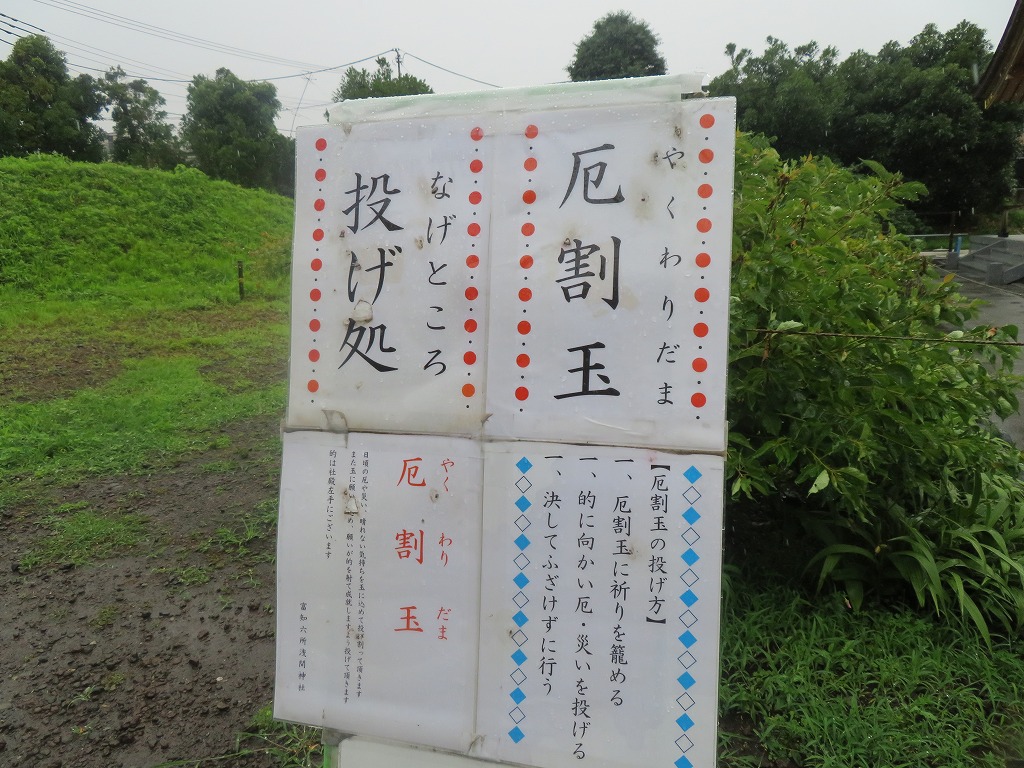 やくわりだま
厄割玉
なげところ
投げ処
【厄割玉の投げ方】
一、厄割玉に祈りを籠める
一、的に向かい厄・災いを投げる
一、決してふざけずに行う
やく わり だま
厄割玉
日頃の厄や災い、晴れない気持ちを玉に込めて投げ割って頂きます
また玉に願いを込め、願いが的を射て成就しますよう投げて頂きます
的は社殿左手にございます
富知六所浅間神社